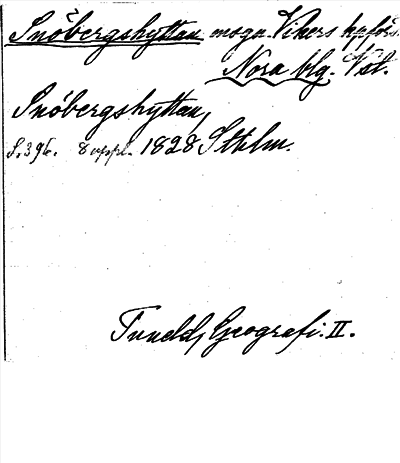 Snöbergshyttan mogn. Vikers kpförs.
Nora blg. Vst.
Snöbergshyttan,
S. 396. 8 uppl. 1828 Sthlm.
Tuneld, Geografi. II.